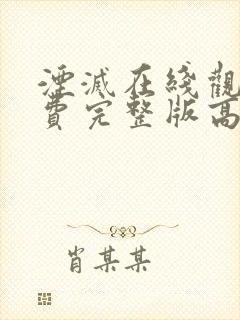 湮滅在綫觀
費完整版高
肖某某